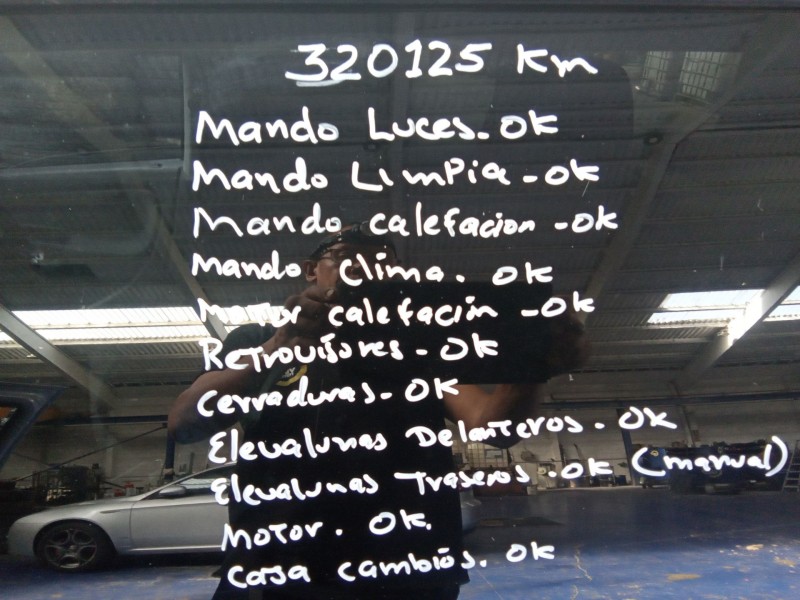 320125 Km
Mando Luces. OK
Mando Limpia - OK
Mando calefacion - OK
Mando Clima. OK
Motor calefación - OK
Retrovisores - OK
Cerraduras - OK
Elevalunas Delanteros. OK
Elevalunas Traseros. OK (manual)
Motor. OK.
Caja cambiós. OK